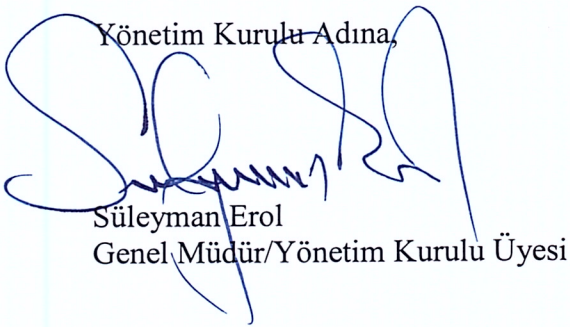 Yönetim Kurulu Adına,
Süleyman Erol
Genel Müdür/Yönetim Kurulu Üyesi